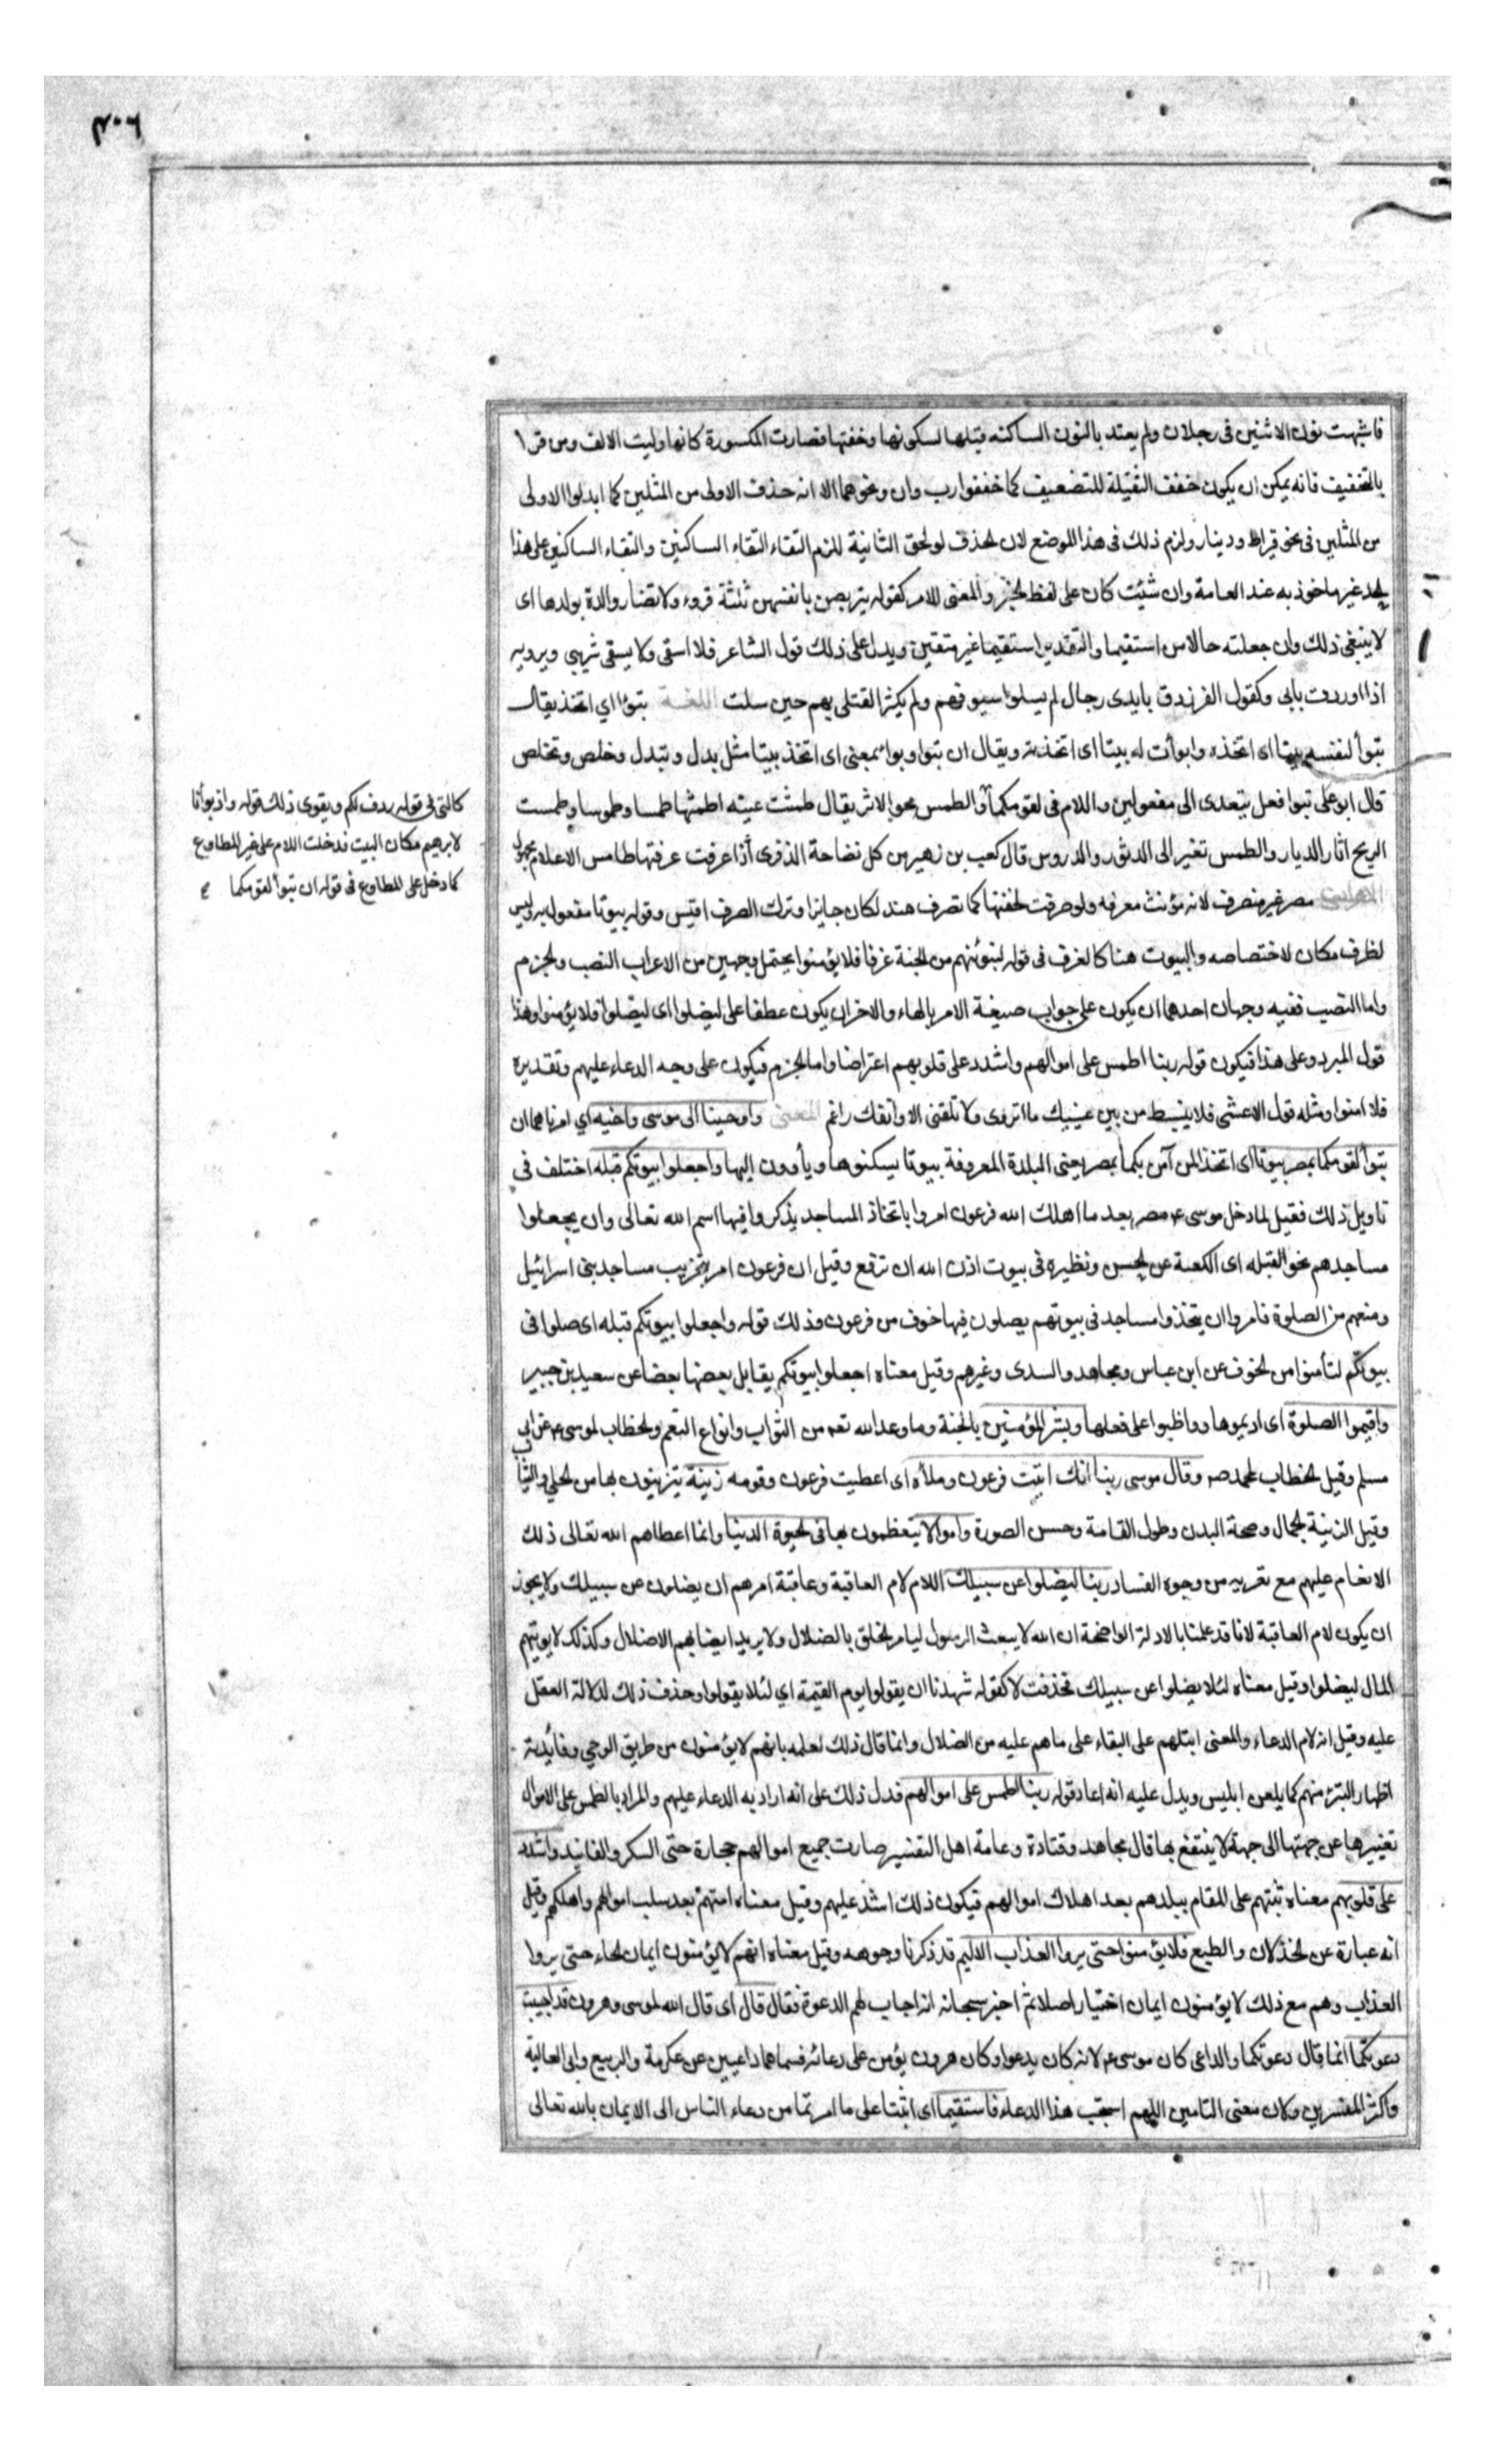 فاشبهت نون الاثنين فى رجلان ولم يعتد بالنون الساكنه قبلها لسكونها وخفتها فصارت المكسورة كانها وليت الالف ومن قرا
بالتخفيف فانه يمكن ان يكون خفف الثقيلة للتضعيف كما خففوا رب وان ونحوهما الا انه حذف الاولى من المثلين كما ابدلوا الاولى
من المثلين فى نحو قيراط ودينار ولزم ذلك فى هذا الموضع لان الحذف لو لحق الثانية للزم التقاء التقاء الساكنين والتقاء الساكنين على هذا
الحد غير ماخوذ به عند العامة وان شئت كان على لفظ الخبر والمعنى للامر كقوله يتربصن بانفسهن ثلثة قروء ولا تضار والدة بولدها اى
لا ينبغى ذلك وان جعلته حالا من استقيما والتقدير استقيما غير متقين ويدل على ذلك قول الشاعر فلا اسقى ولا يسقى شريبى ويرويه
اذا اوردت بابى وكقول الفرزدق بايدى رجال لم يسلوا سيوفهم ولم يكثر القتلى بهم حين سلت اللغة تبوءا اي اتخذ يقال
تبوأ لنفسه بيتا اى اتخذه وابوأت له بيتا اى اتخذته ويقال ان تبوا وبوا بمعنى اى اتخذ بيتا مثل بدل وتبدل وخلص وتخلص
قال ابو على تبوا فعل يتعدى الى مفعولين واللام فى لقومكما والطمس محو الاثر يقال طمشت عينه اطمثها طمسا وطموسا وطمست
الريح اثار الديار والطمس تغير الى الدثور والدروس قال كعب بن زهير من كل نضاحة الذفرى أذا عرقت عرفتها طامس الاعلام مجهول
الاعراب مصر غير منصرف لانه مؤنث معرفه ولو صرفت لخفتها كما تصرف هند لكان جايزا وترك الصرف اقيس وقوله بيوتا مفعول به وليس
لظرف مكان لاختصاصه والبيوت هنا كالغرف فى قوله لنبوئنهم من الجنة غرفا فلا يؤمنوا يحتمل وجهين من الاعراب النصب والجزم
واما النصب ففيه وجهان احدهما ان يكون على جواب صيغة الامر بالهاء والاخران يكون عطفا على ليضلوا اى ليضلوا فلا يؤمنوا وهذا
قول المبرد وعلى هذا فيكون قوله ربنا اطمس على اموالهم واشدد على قلوبهم اعتراضا واما الجزم فيكون على وجه الدعاء عليهم وتقديره
فلا امنوا ومثله قول الاعشى فلا ينبسط من بين عينيك ما انزوى ولا تلقنى الا وانفك راغم المعنى واوحينا الى موسى واخيه اي امرناهما ان
تبوأ لقومكما بمصر بيوتا اى اتخذا لمن آمن بكما بمصر يعنى البلدة المعروفة بيوتا يسكنوها ويأوون اليها واجعلوا بيوتكم قبله اختلف فى
تاويل ذلك فقيل لما دخل موسى ع مصر بعد ما اهلك الله فرعون امروا باتخاذ المساجد يذكروا فيها اسم الله تعالى وان يجعلوا
مساجدهم نحو القبله اى الكعبة عن الحسن ونظيره فى بيوت اذن الله ان ترفع وقيل ان فرعون امر بتخريب مساجد بنى اسرائيل
ومنعهم من الصلوة فامروا ان يتخذوا مساجد فى بيوتهم يصلون فيها خوف من فرعون فذلك قوله واجعلوا بيوتكم قبله اى صلوا فى
بيوتكم لتأمنوا من الخوف عن ابن عباس ومجاهد والسدى وغيرهم وقيل معناه اجعلوا بيوتكم يقابل بعضها بعضا عن سعيد بن جبير
واقيموا الصلوة اى اديموها وواظبوا على فعلها وبشر المؤمنين بالجنة وما وعد الله تعه من الثواب وانواع النعم والخطاب لموسى ع عن ابى
مسلم وقيل الخطاب لمحمد صه وقال موسى ربنا انك اتيت فرعون وملأه اى اعطيت فرعون وقومه زينة يتزينون بها من الحلي والثياب
وقيل الزينة الجمال وصحة البدن وطول القامة وحسن الصورة واموالا يتعظمون بها فى الحيوة الدنيا وانما اعطاهم الله تعالى ذلك
الانعام عليهم مع تعريه من وجوه الفساد ربنا ليضلوا عن سبيلك اللام لام العاقبة وعاقبة امرهم ان يضلون عن سبيلك ولا يجوز
ان يكون لام العاقبة لانا قد علمنا بالادلة الواضحة ان الله لا يبعث الرسول ليامر الخلق بالضلال ولا يريد ايضا بهم الاضلال وكذلك لا يوتيهم
المال ليضلوا وقيل معناه لئلا يضلوا عن سبيلك فحذفت لا كقوله شهدنا ان يقولوا يوم القيمة اي لئلا يقولوا وحذف ذلك لدلالة العقل
عليه وقيل انه لام الدعاء والمعنى ابتلهم على البقاء على ما هم عليه من الضلال وانما قال ذلك لعلمه بانهم لا يؤمنون من طريق الوحي وفايدته
اظهار التبرئ منهم كما يلعن ابليس ويدل عليه انه اعاد قوله ربنا اطمس على اموالهم فدل ذلك على انه اراد به الدعاء عليهم والمراد بالطمس على الاموال
تغييرها عن جهتها الى جهة لا ينتفع بها قال مجاهد وقتادة وعامة اهل التفسير صارت جميع اموالهم حجارة حتى السكر والفانيد واشدد
على قلوبهم معناه ثبتهم على المقام ببلدهم بعد اهلاك اموالهم فيكون ذلك اشد عليهم وقيل معناه امتهم بعد سلب اموالهم واهلكهم وقيل
انه عبارة عن الخذلان والطبع فلا يؤمنوا حتى يروا العذاب الاليم قد ذكرنا وجوهه وقيل معناه انهم لا يؤمنون ايمان الجاء حتى يروا
العذاب وهم مع ذلك لا يؤمنون ايمان اختيار اصلا ثم اخبر سبحانه انه اجاب لهم الدعوة فقال قال اى قال الله لموسى وهرون قد اجيبت
دعوتكما انما قال دعوتكما والداعى كان موسى ع لانه كان يدعوا وكان هرون يؤمن على دعائه فسماهما داعيين عن عكرمة والربيع وابى العالية
واكثر المفسرين وكان معنى التامين اللهم استجب هذا الدعاء فاستقيما اى اثبتا على ما امرتما من دعاء الناس الى الايمان بالله تعالى
كالتى فى قوله ردف لكم ويقوى ذلك قوله واذ بوأنا
لابرهيم مكان البيت فدخلت اللام على غير المطاوع
كما دخل على المطاوع فى قوله ان تبوأ لقومكما